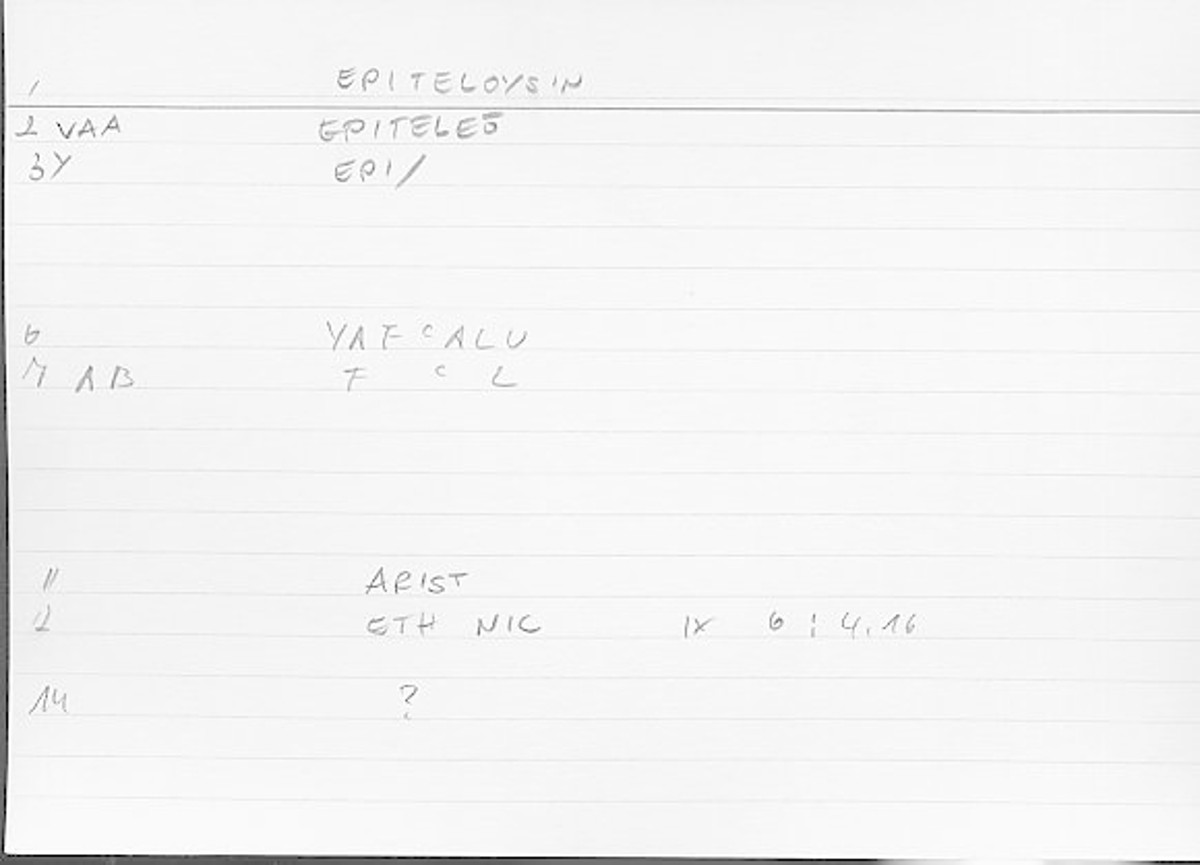 1 EPITELOYSIN
2 VAA EPITELEO
3Y EPI/
6 YAF C ALU
7 AB F C L
11 ARIST
12 ETH NIC IX 6 : 4.16
14 ?